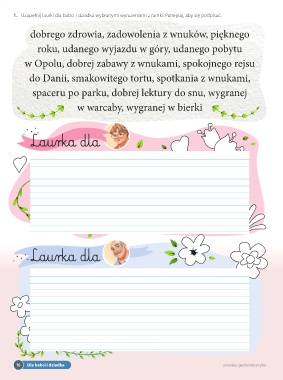 1. Uzupełnij laurki dla babci i dziadka wybranymi wyrażeniami z ramki. Pamiętaj, aby się podpisać.
dobrego zdrowia, zadowolenia z wnuków, pięknego
roku, udanego wyjazdu w góry, udanego pobytu
w Opolu, dobrej zabawy z wnukami, spokojnego rejsu
do Danii, smakowitego tortu, spotkania z wnukami,
spaceru po parku, dobrej lektury do snu, wygranej
w warcaby, wygranej w bierki
Laurka dla
Laurka dla
Dla babci i dziadka